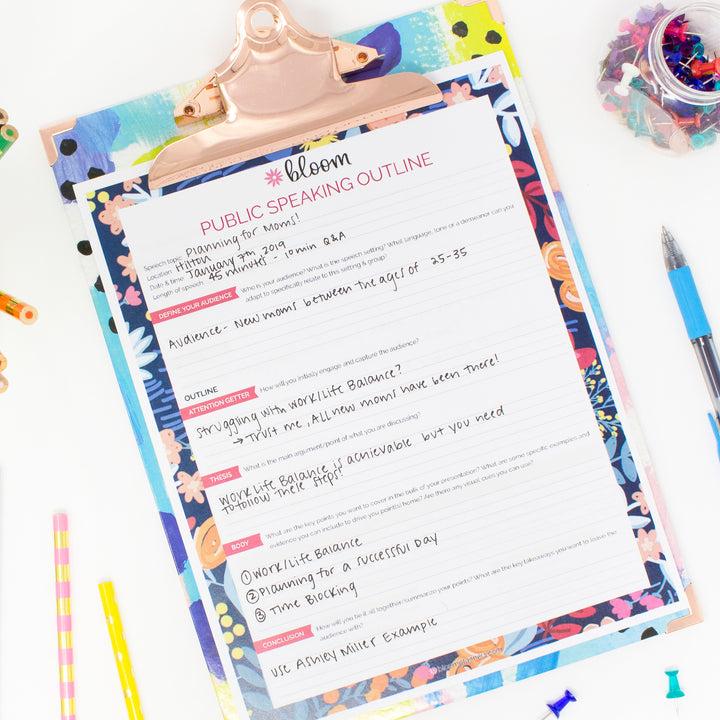 bloom
PUBLIC SPEAKING OUTLINE
Speech topic: Planning for Moms!
Location: Hilton
Date & time: January 7th, 2019
Length of speech: 45 minutes - 10 min Q&A
DEFINE YOUR AUDIENCE Who is your audience? What is the speech setting? What language, tone or a demeanor can you
adapt to specifically relate to this setting & group?
Audience - New moms between the ages of 25-35
OUTLINE
ATTENTION GETTER How will you initially engage and capture the audience?
Struggling with Work/Life Balance?
→ Trust me, All new moms have been there!
THESIS What is the main argument/point of what you are discussing?
Work Life Balance is achievable but you need
to follow these steps!
BODY What are the key points you want to cover in the bulk of your presentation? What are some specific examples and
evidence you can include to drive you point(s) home? Are there any visual aids you can use?
① Work/Life Balance
② Planning for a successful Day
③ Time Blocking
CONCLUSION How will you tie it all together/summarize your points? What are the key takeaways you want to leave the
audience with?
Use Ashley Miller Example